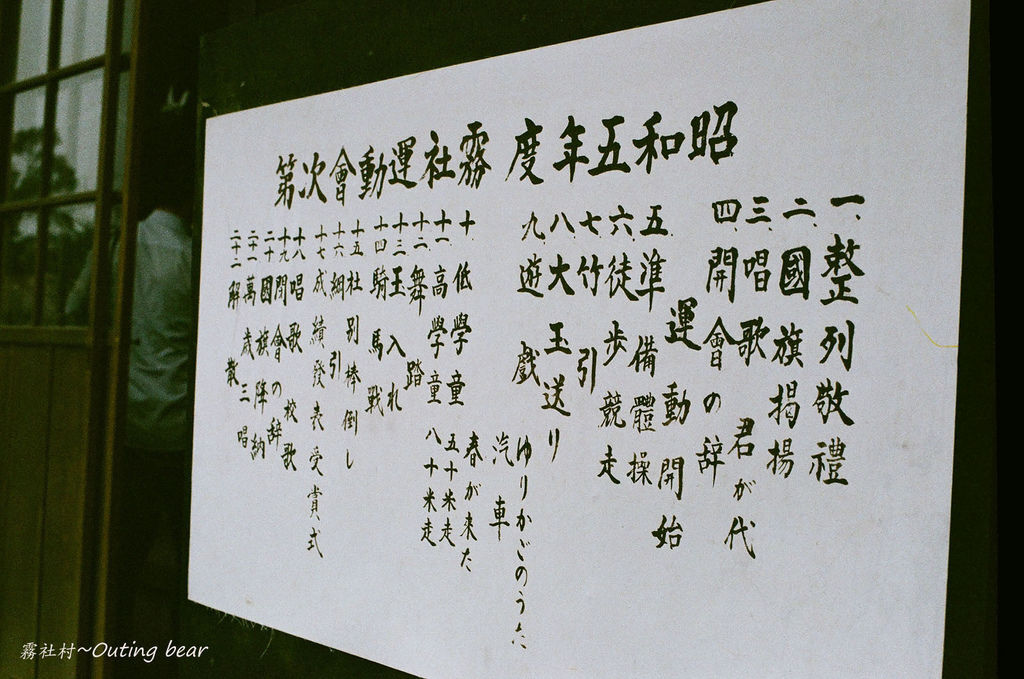 昭和五年度 霧社運動會次第
一、整列敬禮
二、國旗揭揚
三、唱歌 君が代
四、開會の辞
運動開始
五、準備體操
六、徒歩競走
七、竹引
八、大玉送り
九、遊戲 ゆりかごのうた
汽車
春が来た
十、低學童 五十米走
十一、高學童 八十米走
十二、舞踏
十三、玉入れ
十四、騎馬戰
十五、社別棒倒し
十六、綱引
十七、成績發表受賞式
十八、唱歌 校歌
十九、閉會の辞
二十、國旗降納
二十一、萬歲三唱
二十二、解散
霧社村~Outing bear